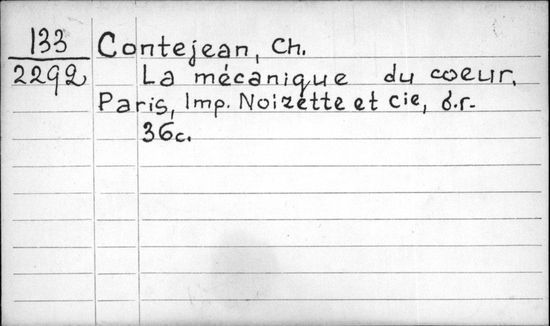 133
2292
Contejean, Ch.
La mécanique du coeur.
Paris, Imp. Noizette et cie, б.г.
36с.